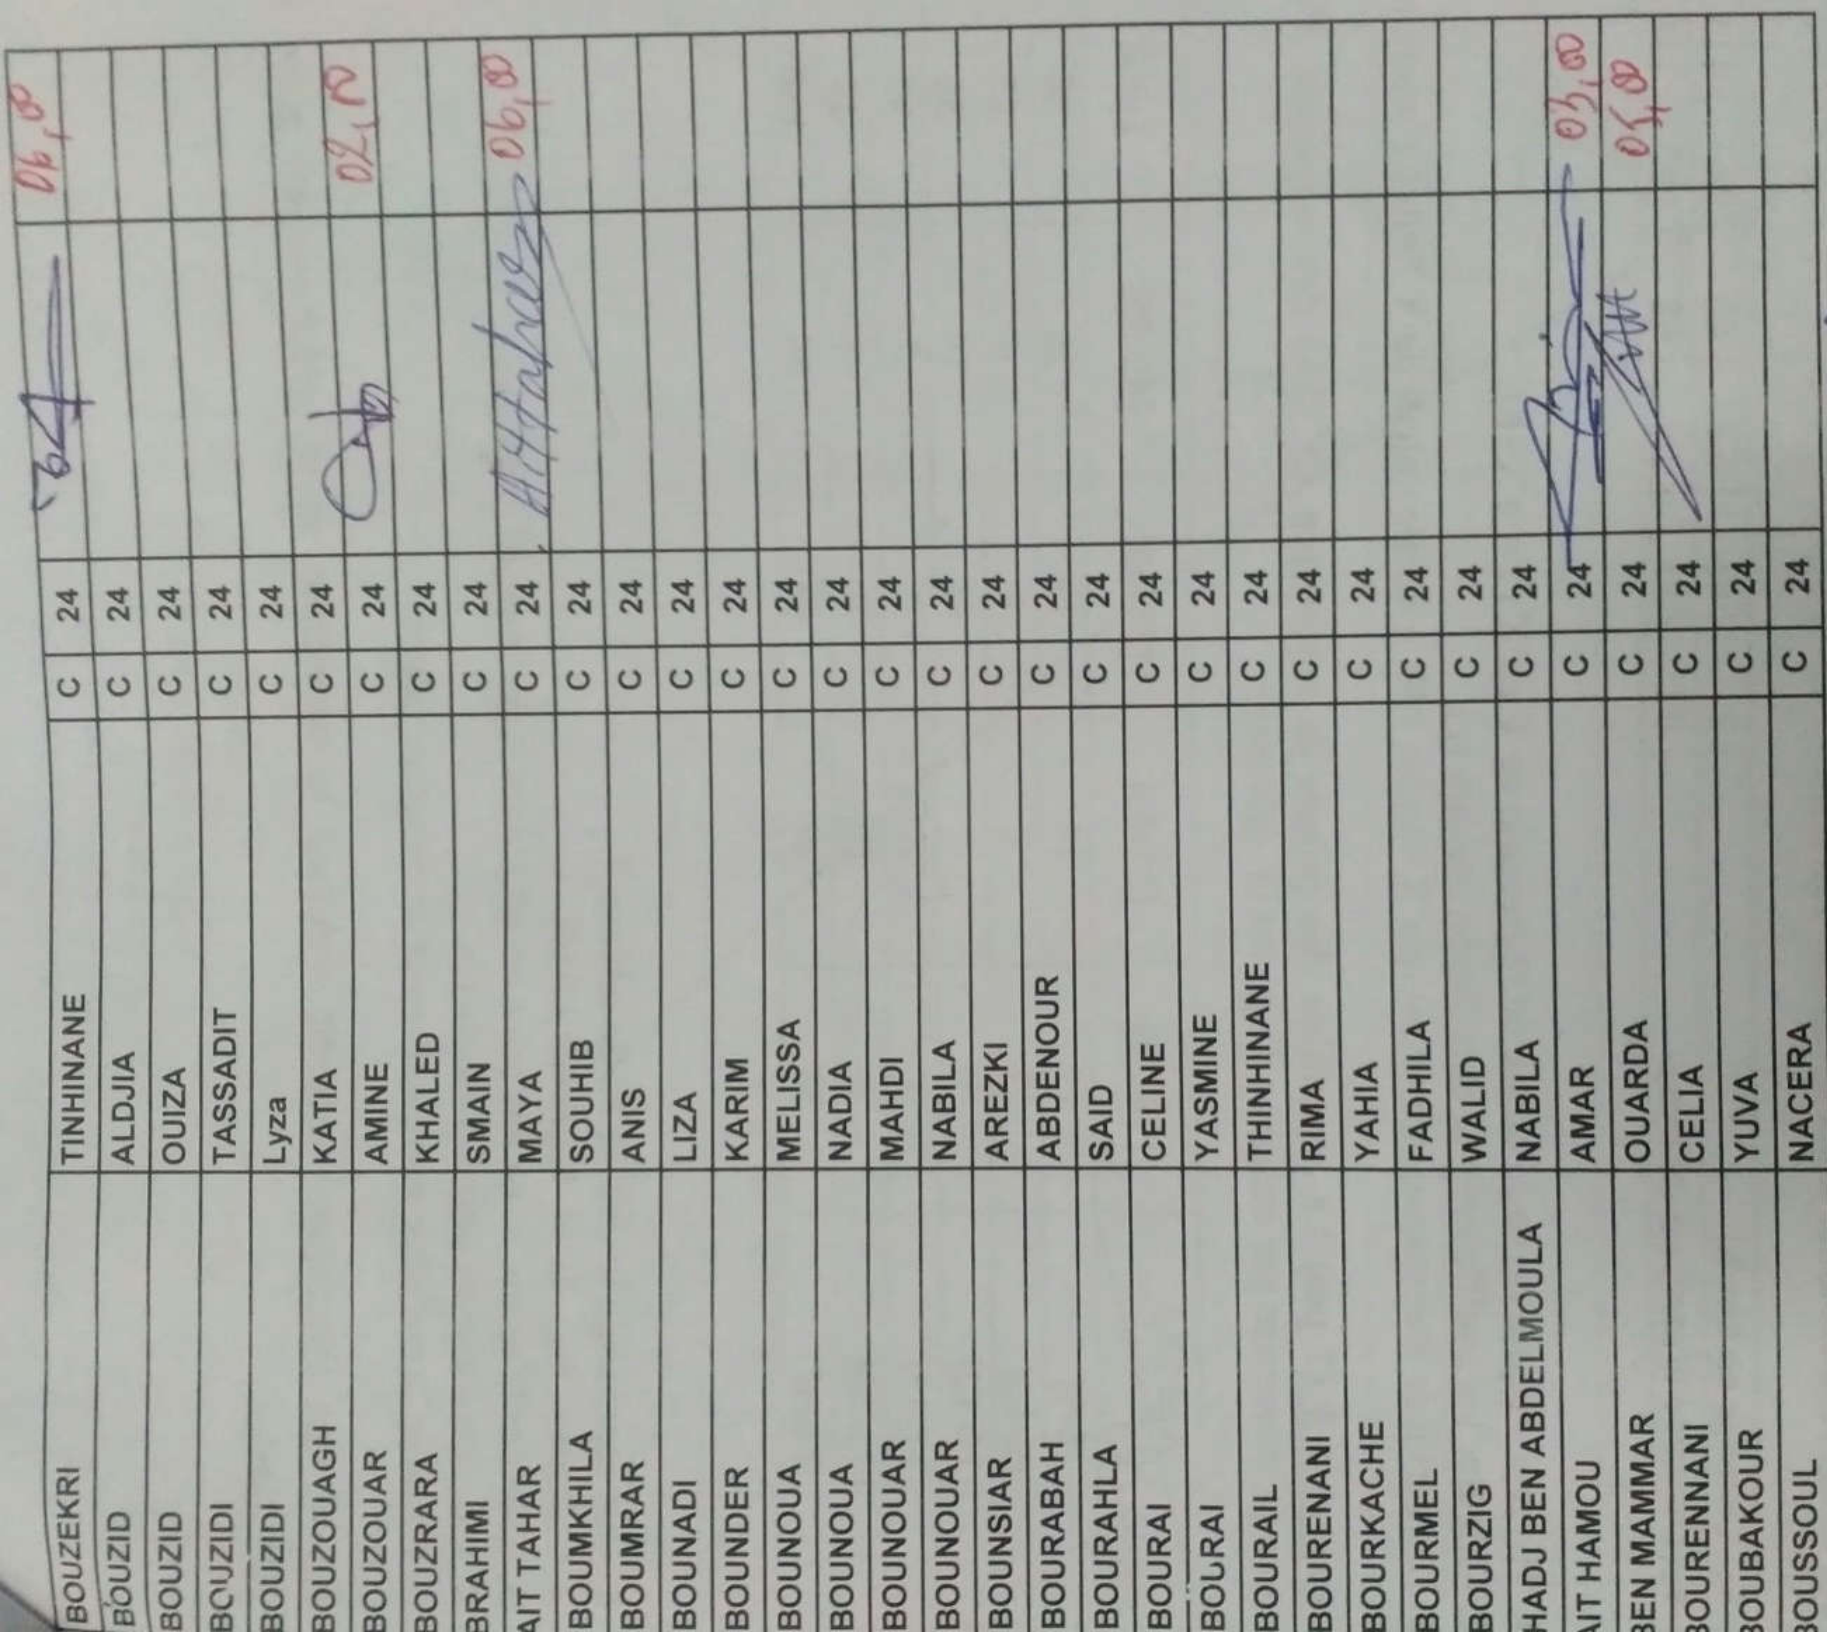 BOUZEKRI TINHINANE C 24 06,00
BOUZID ALDJIA C 24
BOUZID OUIZA C 24
BOUZIDI TASSADIT C 24
BOUZIDI Lyza C 24
BOUZOUAGH KATIA C 24
BOUZOUAR AMINE C 24 02,00
BOUZRARA KHALED C 24
BRAHIMI SMAIN C 24
AIT TAHAR MAYA C 24 06,00
BOUMKHILA SOUHIB C 24
BOUMRAR ANIS C 24
BOUNADI LIZA C 24
BOUNDER KARIM C 24
BOUNOUA MELISSA C 24
BOUNOUA NADIA C 24
BOUNOUAR MAHDI C 24
BOUNOUAR NABILA C 24
BOUNSIAR AREZKI C 24
BOURABAH ABDENOUR C 24
BOURAHLA SAID C 24
BOURAI CELINE C 24
BOURAI YASMINE C 24
BOURAIL THINHINANE C 24
BOURENANI RIMA C 24
BOURKACHE YAHIA C 24
BOURMEL FADHILA C 24
BOURZIG WALID C 24
HADJ BEN ABDELMOULA NABILA C 24
AIT HAMOU AMAR C 24 03,00
BEN MAMMAR OUARDA C 24 05,00
BOURENNANI CELIA C 24
BOUBAKOUR YUVA C 24
BOUSSOUL NACERA C 24